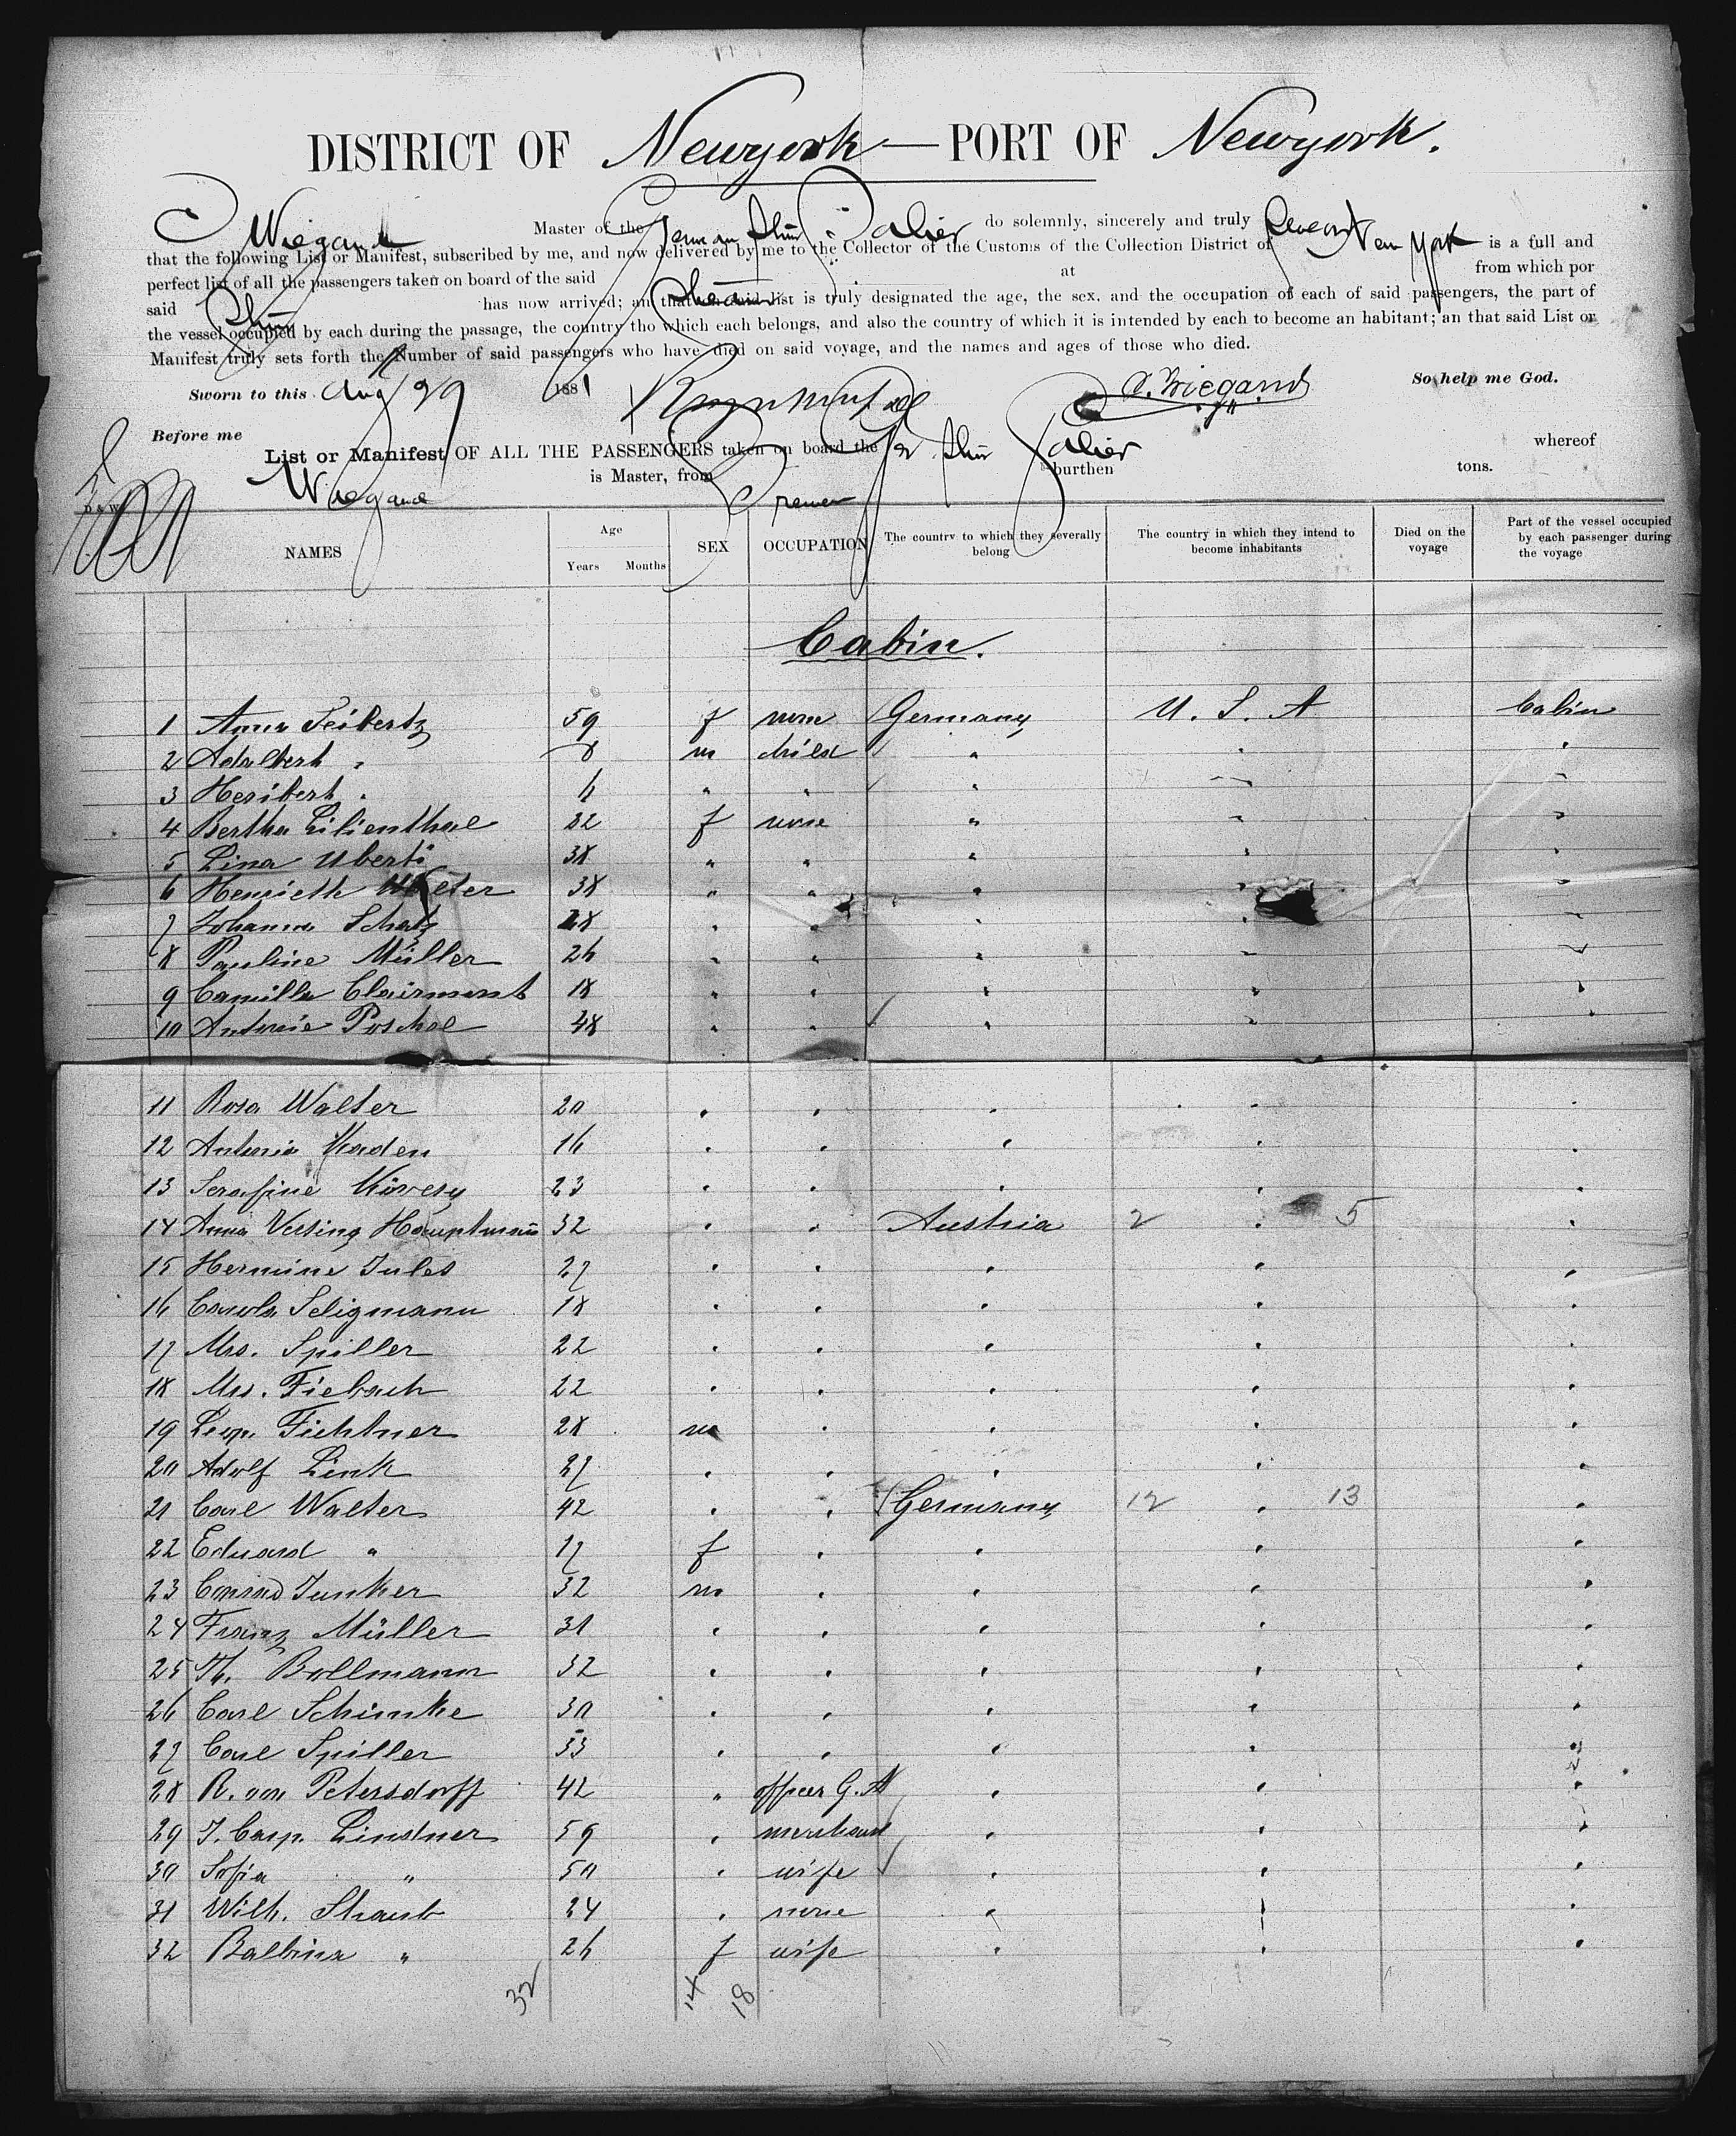 DISTRICT OF Newyork — PORT OF Newyork.
Wiegand Master of the German Ship Salier do solemnly, sincerely and truly swear
that the following List or Manifest, subscribed by me, and now delivered by me to the Collector of the Customs of the Collection District of New York is a full and
perfect list of all the passengers taken on board of the said at from which por
said Ship has now arrived; an that on said list is truly designated the age, the sex. and the occupation of each of said passengers, the part of
the vessel occupied by each during the passage, the country tho which each belongs, and also the country of which it is intended by each to become an habitant; an that said List or
Manifest truly sets forth the Number of said passengers who have died on said voyage, and the names and ages of those who died.
Sworn to this Aug 29 1881 C. Wiegand So help me God.
Before me
List or Manifest OF ALL THE PASSENGERS taken on board the Ship Salier whereof
Wiegand is Master, from Bremen burthen tons.
NAMES Age Years Months SEX OCCUPATION The country to which they severally belong The country in which they intend to become inhabitants Died on the voyage Part of the vessel occupied by each passenger during the voyage
Cabin.
1 Anna Seibertz 59 f none Germany U. S. A Cabin
2 Adalbert " 8 m child " " "
3 Heribert " 6 " " " " "
4 Bertha Lilienthal 32 f none " " "
5 Lina Uberti 38 " " " " "
6 38 " " " " "
7 Johanna Schatz 28 " " " " "
8 Pauline Müller 26 " " " " "
9 Camilla Clairmont 18 " " " " "
10 Antonie Poschal 48 " " " " "
11 Rosa Walter 20 " " " " "
12 Antonie Kaden 16 " " " " "
13 Serafine 23 " " " " "
14 Anna Versing Hauptmann 32 " " Austria 2 " 5 "
15 Hermine Jules 27 " " " " "
16 Carola Seligmann 18 " " " " "
17 Mrs. Spiller 22 " " " " "
18 Mrs. Fiebach 22 " " " " "
19 Leop. Fichtner 28 m " " " "
20 Adolf Link 27 " " " " "
21 Carl Walter 42 " " Germany 12 " 13 "
22 Eduard " 17 f " " " "
23 Conrad Junker 32 m " " " "
24 Franz Müller 31 " " " " "
25 Th. Bollmann 32 " " " " "
26 Carl Schimke 30 " " " " "
27 Carl Spiller 33 " " " " "
28 R. von Petersdorff 42 " officer G. A " " "
29 J. Casp. Lindner 59 " merchant " " "
30 Sofia " 50 " wife " " "
31 Wilh. Straub 24 " none " " "
32 Balbina " 26 f wife " " "
32 14 18